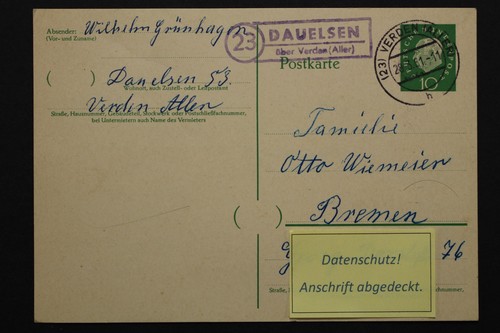 Absender: Wilhelm Grünhagen
(Vor- und Zuname)
Dauelsen 53
Wohnort, auch Zustell- oder Leitpostamt
Verden Aller
Straße, Hausnummer, Gebäudeteil, Stockwerk oder Postschließfachnummer,
bei Untermietern auch Name des Vermieters
23 DAUELSEN
über Verden (Aller)
Postkarte
(23) VERDEN (ALLER)
h
10
Familie
Otto Wiemeier
Bremen
76
Datenschutz!
Anschrift abgedeckt.